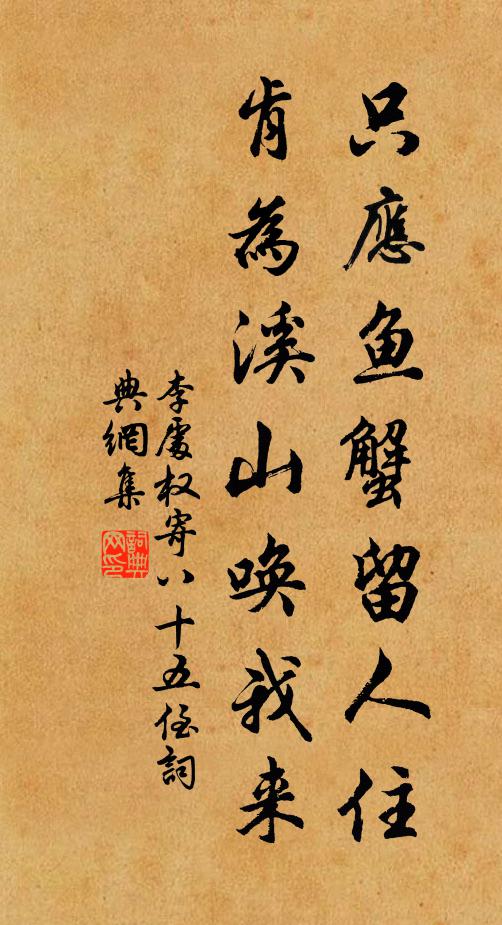 只應鱼蟹留人住
肯為溪山唤我来
李處权寄八十五侄詞
典網集
詞典
网印